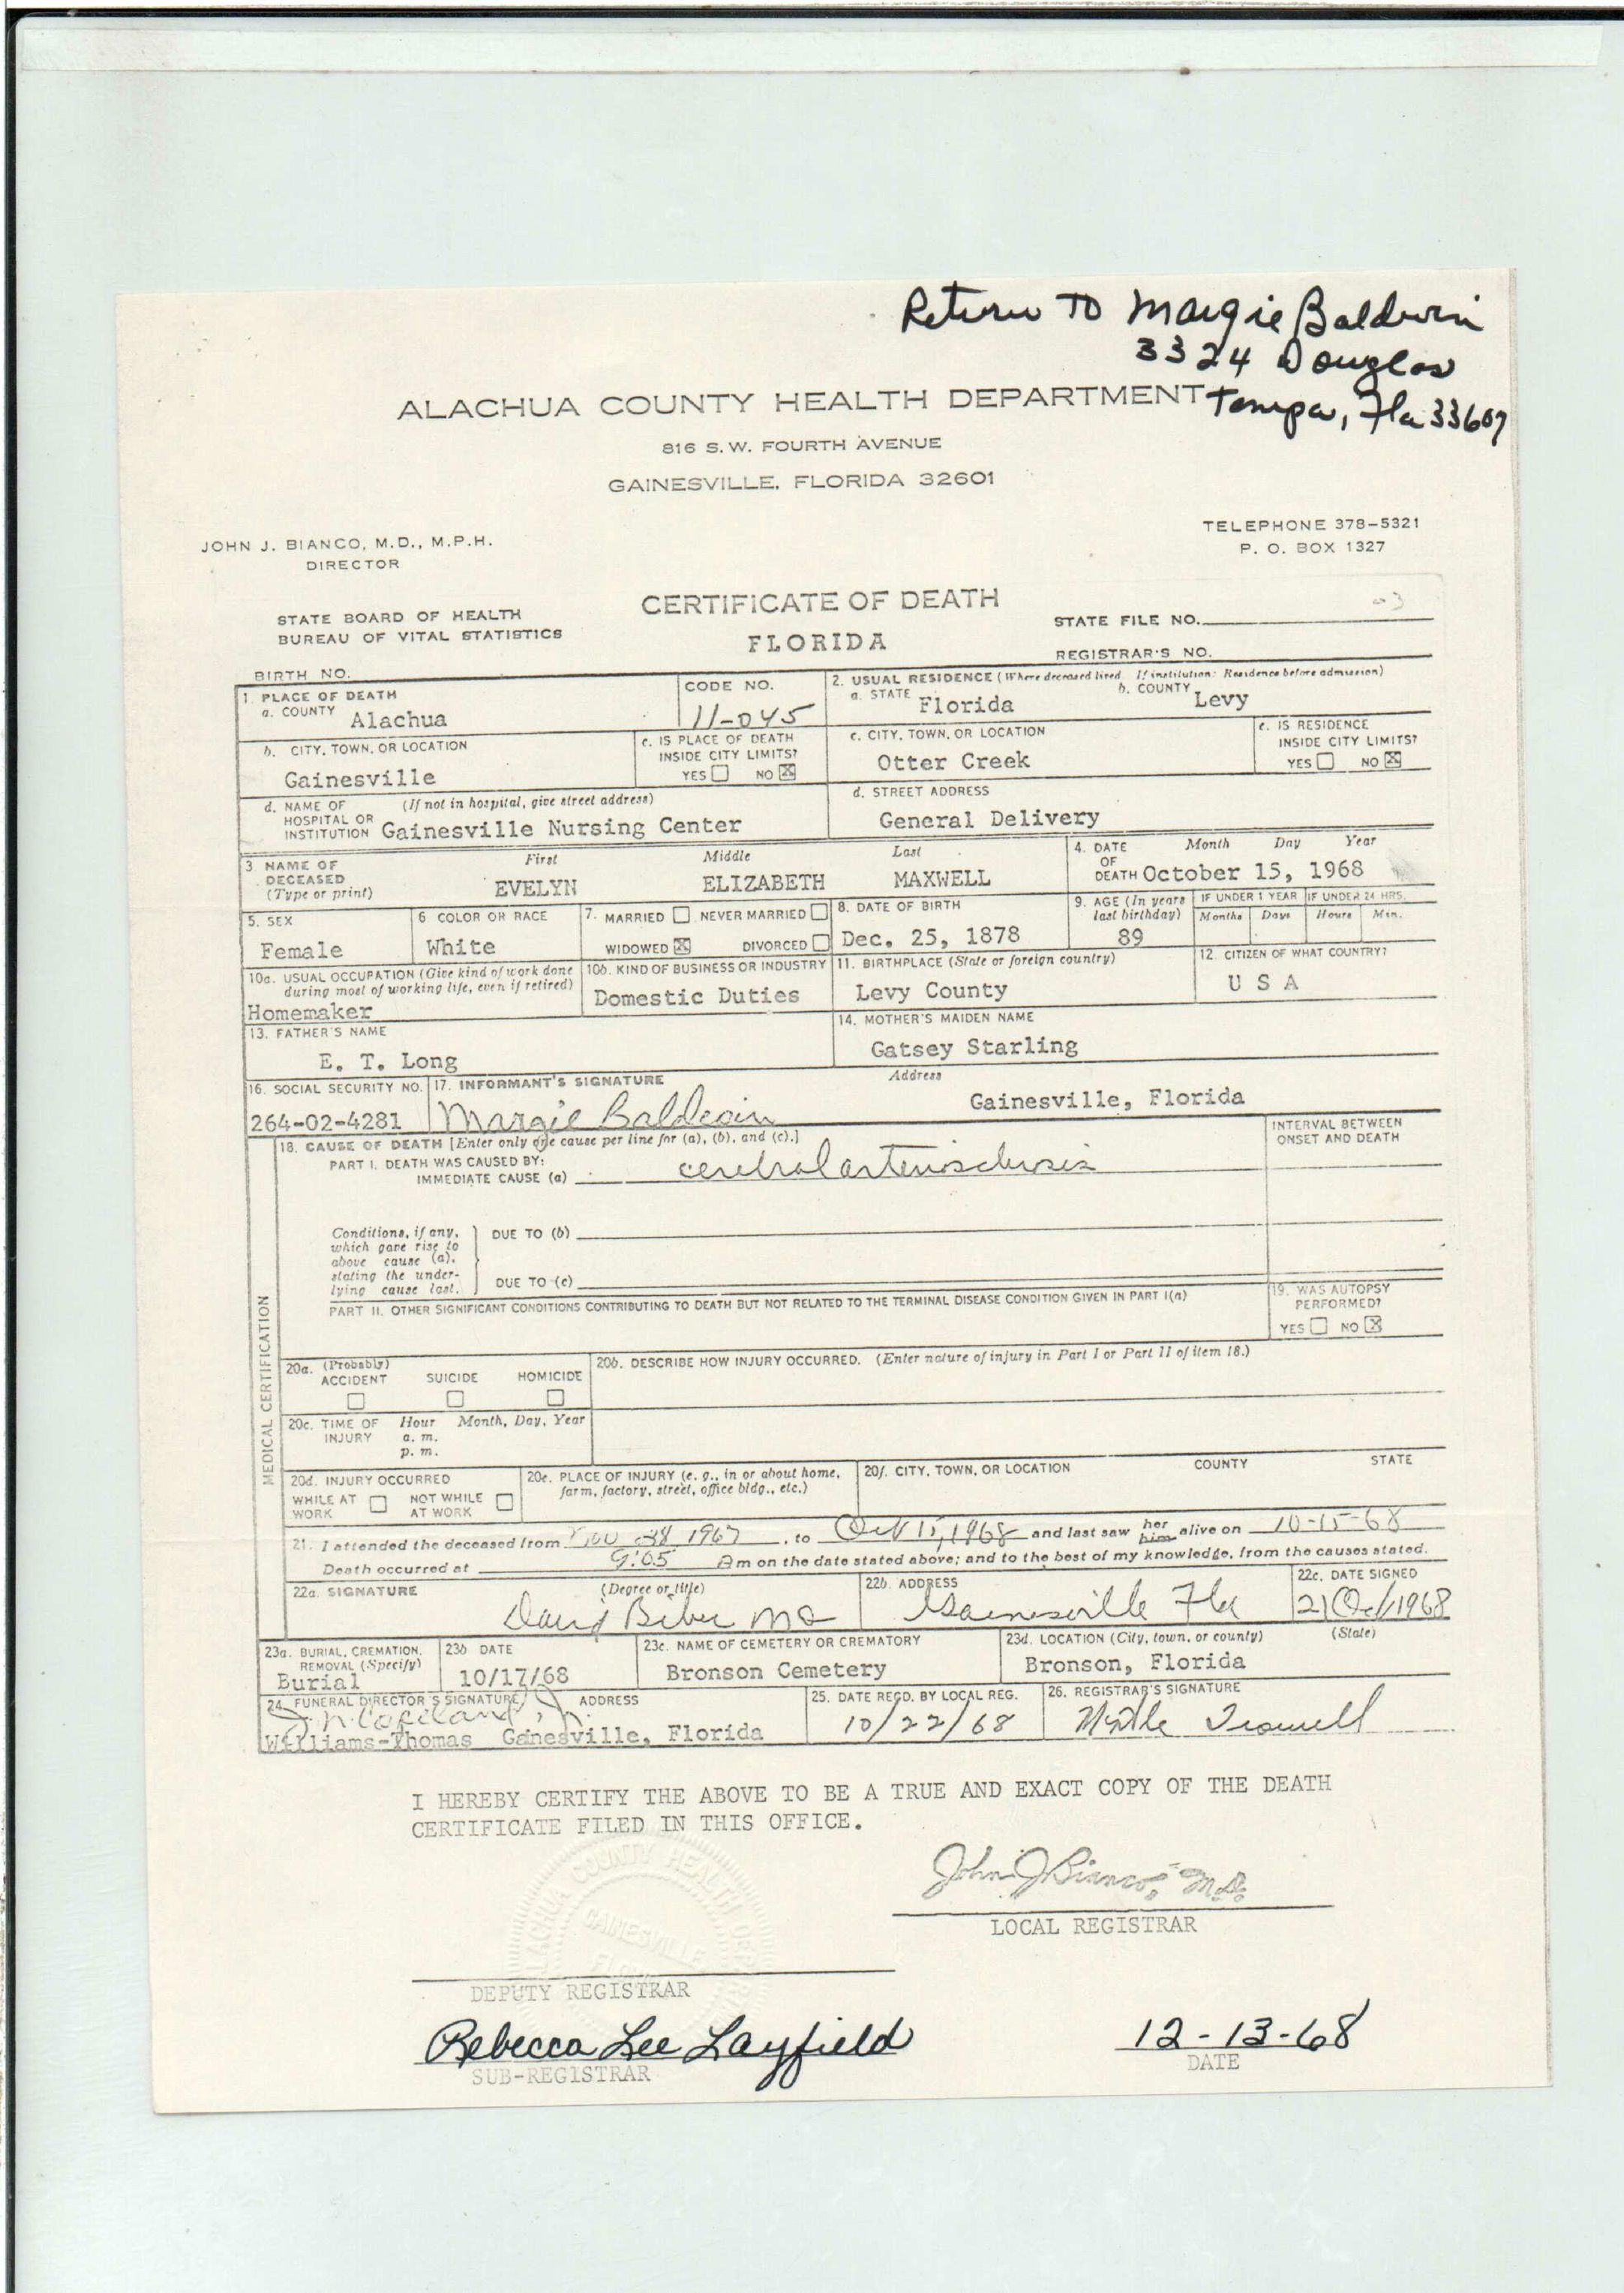 Return To Margie Baldwin
3324 Douglas
Tampa, Fla 33607
ALACHUA COUNTY HEALTH DEPARTMENT
816 S.W. FOURTH AVENUE
GAINESVILLE, FLORIDA 32601
TELEPHONE 378-5321
P. O. BOX 1327
JOHN J. BIANCO, M.D., M.P.H.
DIRECTOR
STATE BOARD OF HEALTH
BUREAU OF VITAL STATISTICS
CERTIFICATE OF DEATH
FLORIDA
STATE FILE NO.
REGISTRAR'S NO.
BIRTH NO.
1. PLACE OF DEATH
a. COUNTY Alachua
CODE NO.
11-045
2. USUAL RESIDENCE (Where deceased lived. If institution: Residence before admission)
a. STATE Florida b. COUNTY Levy
b. CITY, TOWN, OR LOCATION
Gainesville
c. IS PLACE OF DEATH
INSIDE CITY LIMITS?
YES NO X
c. CITY, TOWN, OR LOCATION
Otter Creek
e. IS RESIDENCE
INSIDE CITY LIMITS?
YES NO X
d. NAME OF (If not in hospital, give street address)
HOSPITAL OR
INSTITUTION Gainesville Nursing Center
d. STREET ADDRESS
General Delivery
3. NAME OF First Middle Last
DECEASED
(Type or print) EVELYN ELIZABETH MAXWELL
4. DATE Month Day Year
OF
DEATH October 15, 1968
5. SEX
Female
6 COLOR OR RACE
White
7. MARRIED NEVER MARRIED
WIDOWED X DIVORCED
8. DATE OF BIRTH
Dec. 25, 1878
9. AGE (In years
last birthday)
89
IF UNDER 1 YEAR IF UNDER 24 HRS.
Months Days Hours Min.
10a. USUAL OCCUPATION (Give kind of work done
during most of working life, even if retired)
Homemaker
10b. KIND OF BUSINESS OR INDUSTRY
Domestic Duties
11. BIRTHPLACE (State or foreign country)
Levy County
12. CITIZEN OF WHAT COUNTRY?
U S A
13. FATHER'S NAME
E. T. Long
14. MOTHER'S MAIDEN NAME
Gatsey Starling
16. SOCIAL SECURITY NO.
264-02-4281
17. INFORMANT'S SIGNATURE Address
Margie Baldwin Gainesville, Florida
MEDICAL CERTIFICATION
18. CAUSE OF DEATH [Enter only one cause per line for (a), (b), and (c).]
PART I. DEATH WAS CAUSED BY:
IMMEDIATE CAUSE (a) cerebral arteriosclerosis
INTERVAL BETWEEN
ONSET AND DEATH
Conditions, if any,
which gave rise to
above cause (a),
stating the under-
lying cause last.
DUE TO (b)
DUE TO (c)
PART II. OTHER SIGNIFICANT CONDITIONS CONTRIBUTING TO DEATH BUT NOT RELATED TO THE TERMINAL DISEASE CONDITION GIVEN IN PART I(a)
19. WAS AUTOPSY
PERFORMED?
YES NO X
20a. (Probably)
ACCIDENT SUICIDE HOMICIDE
20b. DESCRIBE HOW INJURY OCCURRED. (Enter nature of injury in Part I or Part II of item 18.)
20c. TIME OF Hour Month, Day, Year
INJURY a. m.
p. m.
20d. INJURY OCCURRED
WHILE AT NOT WHILE
WORK AT WORK
20e. PLACE OF INJURY (e. g., in or about home,
farm, factory, street, office bldg., etc.)
20f. CITY, TOWN, OR LOCATION COUNTY STATE
21. I attended the deceased from Nov 28 1967, to Oct 15, 1968 and last saw her him alive on 10-15-68
Death occurred at 9:05 Am on the date stated above; and to the best of my knowledge, from the causes stated.
22a. SIGNATURE (Degree or title)
David MD
22b. ADDRESS
Gainesville Fla
22c. DATE SIGNED
21 Oct 1968
23a. BURIAL, CREMATION,
REMOVAL (Specify)
Burial
23b DATE
10/17/68
23c. NAME OF CEMETERY OR CREMATORY
Bronson Cemetery
23d. LOCATION (City, town, or county) (State)
Bronson, Florida
24. FUNERAL DIRECTOR'S SIGNATURE ADDRESS
J. N. Copeland, Jr.
Williams-Thomas Ganesville, Florida
25. DATE RECD. BY LOCAL REG.
10/22/68
26. REGISTRAR'S SIGNATURE
Myrtle
I HEREBY CERTIFY THE ABOVE TO BE A TRUE AND EXACT COPY OF THE DEATH
CERTIFICATE FILED IN THIS OFFICE.
ALACHUA COUNTY HEALTH
GAINESVILLE
John J Bianco, M.D.
LOCAL REGISTRAR
DEPUTY REGISTRAR
Rebecca Lee Layfield
SUB-REGISTRAR
12-13-68
DATE